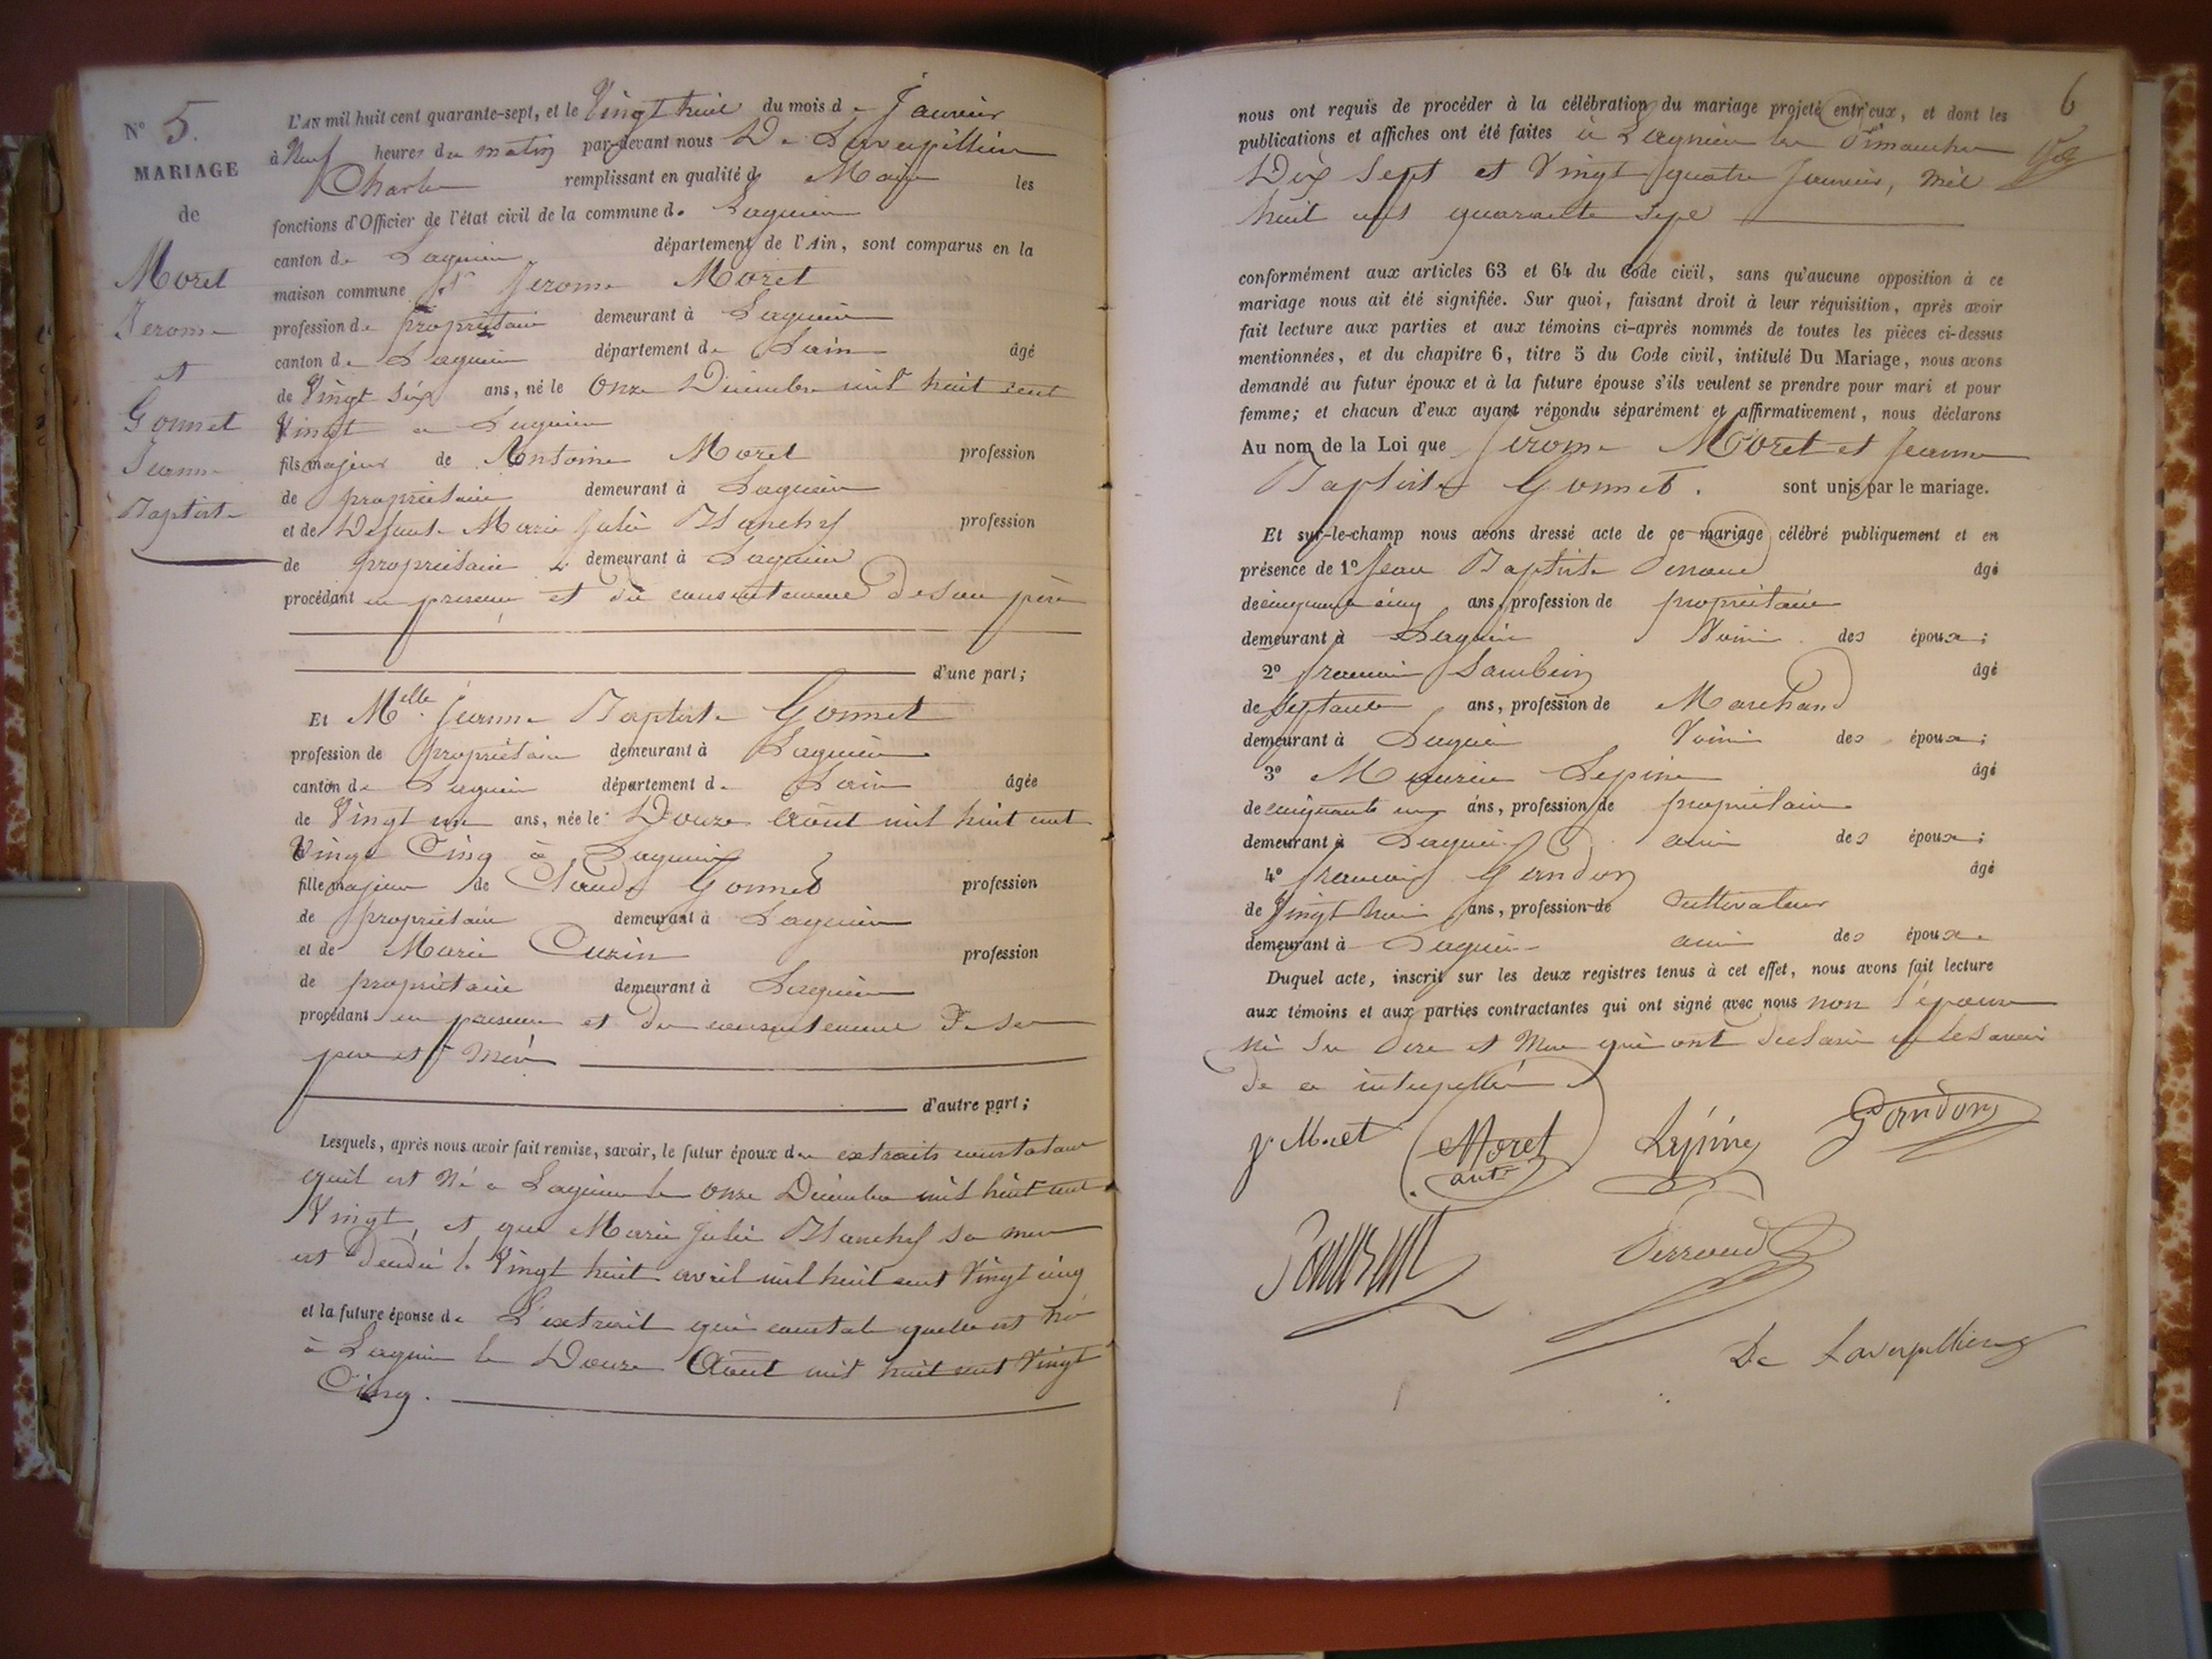 N° 5.
MARIAGE
de
Moret
Jerome
et
Gonnet
Jeanne
Baptiste
L'AN mil huit cent quarante-sept, et le Vingt huit du mois de Janvier
à Neuf heures du matin par-devant nous De Laverpilliere
Charles remplissant en qualité de Maire les
fonctions d'Officier de l'état civil de la commune de Lagnieu
canton de Lagnieu département de l'Ain, sont comparus en la
maison commune Sr Jerome Moret
profession de propriétaire demeurant à Lagnieu
canton de Lagnieu département de Lain âgé
de Vingt Six ans, né le Onze Décembre mil huit cent
Vingt a Lagnieu
fils majeur de Antoine Moret profession
de propriétaire demeurant à Lagnieu
et de Defunte Marie Julie Blanchy profession
de propriétaire demeurant à Lagnieu
procédant en presence et du consentement de son père
d'une part;
Et Melle Jeanne Baptiste Gonnet
profession de propriétaire demeurant à Lagnieu
canton de Lagnieu département de Lain âgée
de Vingt un ans, née le Douze Août mil huit cent
Vingt Cinq à Lagnieu
fille majeure de Claude Gonnet profession
de propriétaire demeurant à Lagnieu
et de Marie Cuzin profession
de propriétaire demeurant à Lagnieu
procédant en presence et du consentement de ses
pere et Mère
d'autre part;
Lesquels, après nous avoir fait remise, savoir, le futur époux des extraits constatant
quil est Né a Lagnieu le onze Décembre mil huit cent
Vingt, et que Marie Julie Blanchy sa mere
est decedée le Vingt huit avril mil huit cent Vingt cinq
et la future épouse de L'extrait qui constate quelle est né
à Lagnieu le Douze Aout mil huit cent Vingt
Cinq.
6
nous ont requis de procéder à la célébration du mariage projeté entr'eux, et dont les
publications et affiches ont été faites à Lagnieu les Dimanches
Dix Sept et Vingt quatre Janvier, mil
huit cent quarante sept
conformément aux articles 63 et 64 du Code civil, sans qu'aucune opposition à ce
mariage nous ait été signifiée. Sur quoi, faisant droit à leur réquisition, après avoir
fait lecture aux parties et aux témoins ci-après nommés de toutes les pièces ci-dessus
mentionnées, et du chapitre 6, titre 5 du Code civil, intitulé Du Mariage, nous avons
demandé au futur époux et à la future épouse s'ils veulent se prendre pour mari et pour
femme; et chacun d'eux ayant répondu séparément et affirmativement, nous déclarons
Au nom de la Loi que Jérome Moret et Jeanne
Baptiste Gonnet. sont unis par le mariage.
Et sur-le-champ nous avons dressé acte de ce mariage célébré publiquement et en
présence de 1° Jean Baptiste Perroud âgé
de cinquante cinq ans, profession de propriétaire
demeurant à Lagnieu Voisin des époux;
2° francois âgé
de Septante ans, profession de Marchand
demeurant à Lagnieu Voisin des époux;
3° Maurice Lepine âgé
de cinquante un ans, profession de propriétaire
demeurant à Lagnieu ami des époux;
4° francois Gandon âgé
de Vingt huit ans, profession de Cultivateur
demeurant à Lagnieu ami des époux.
Duquel acte, inscrit sur les deux registres tenus à cet effet, nous avons fait lecture
aux témoins et aux parties contractantes qui ont signé avec nous non l'épouse
ni Ses Pere et Mere qui ont declaré ne le savoir
de ce interpellés
J Moret Moret ant. Lépine Gandon
Perroud
De Laverpilliere